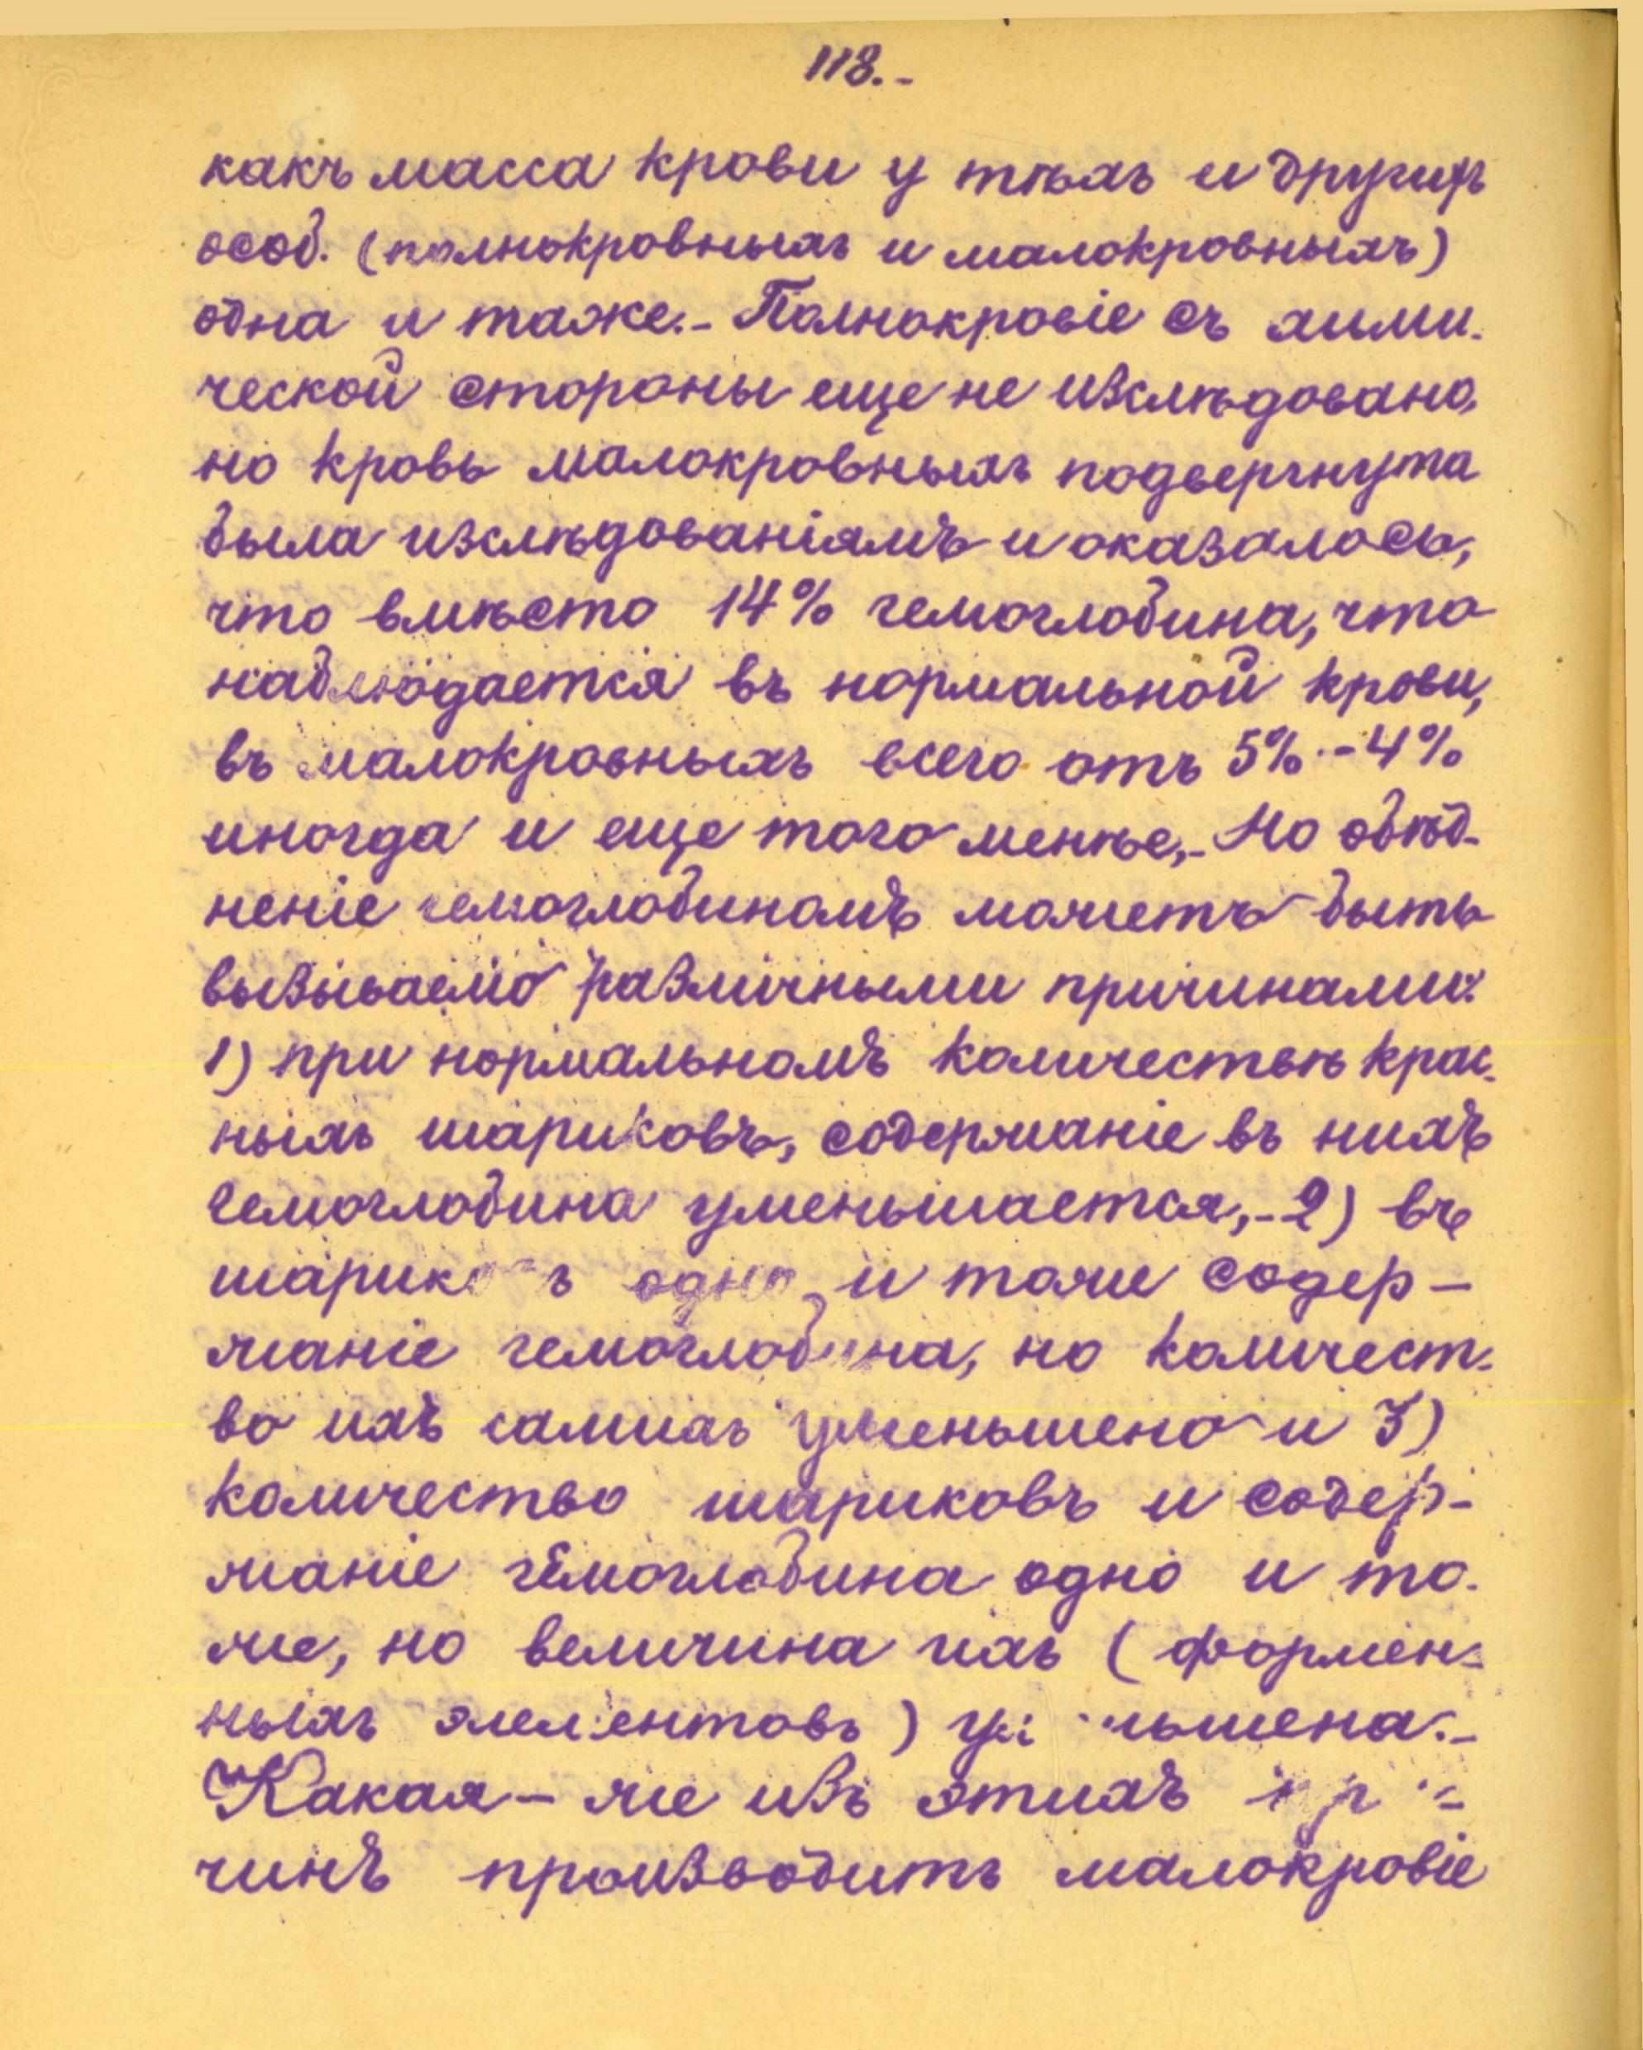 118.-
какъ масса крови у тѣхъ и другихъ
особ. (полнокровныхъ и малокровныхъ)
одна и таже.- Полнокровіе съ хими-
ческой стороны еще не изслѣдовано,
но кровь малокровныхъ подвергнута
была изслѣдованіямъ и оказалось,
что вмѣсто 14% гемоглобина, что
наблюдается въ нормальной крови,
въ малокровныхъ всего отъ 5%-4%
иногда и еще того менѣе,- Но обѣд-
неніе гемоглобиномъ можетъ быть
вызываемо различными причинами:
1) при нормальномъ количествѣ крас-
ныхъ шариковъ, содержаніе въ нихъ
гемоглобина уменьшается,- 2) въ
одно и тоже содер-
жаніе гемоглобина, но количест-
во ихъ самихъ уменьшено и 3)
количество шариковъ и содер-
жаніе гемоглобина одно и то-
же, но величина ихъ (формен-
ныхъ элементовъ) уменьшена.-
Какая-же изъ этихъ
чинъ производитъ малокровіе